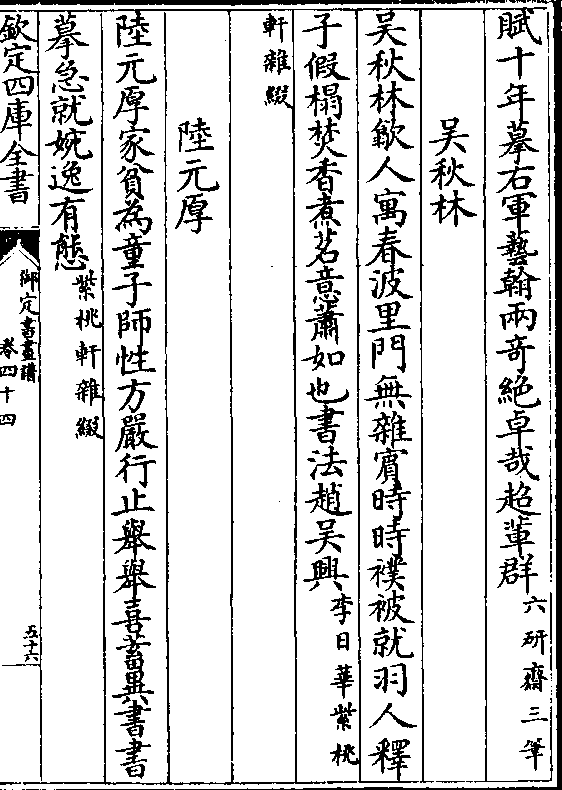 賦十年摹右軍藝翰兩奇絶卓哉超輩群六研齋三筆
吳秋林
吳秋林歙人寓春波里門無雜賓時時襆被就羽人釋
子假榻焚香煮茗意蕭如也書法趙吳興李日華紫桃
軒雜綴
陸元厚
陸元厚家貧為童子師性方嚴行止舉舉喜蓄異書書
摹急就婉逸有態紫桃軒雜綴
欽定四庫全書
御定書畫譜
卷四十四
五十六